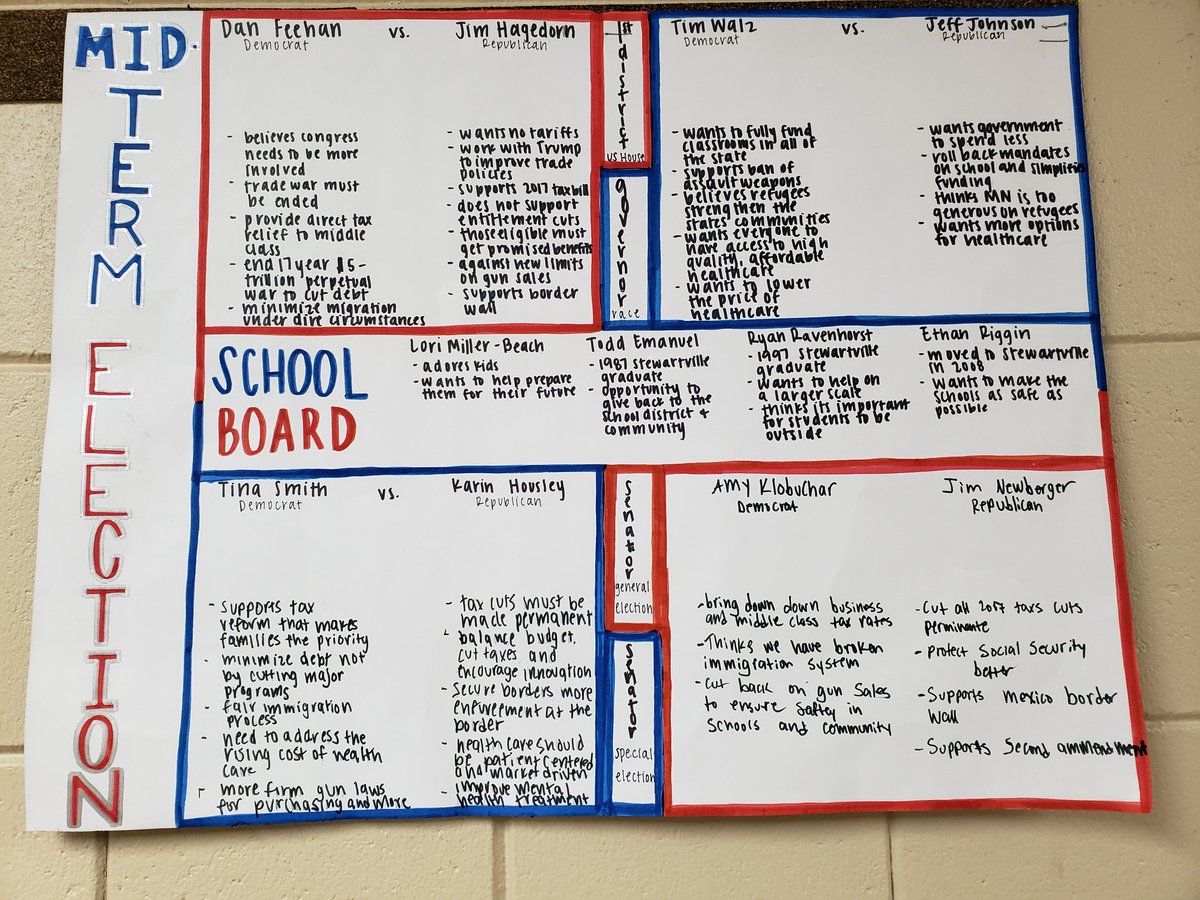 MID-
TERM
ELECTION
Dan Feehan vs. Jim Hagedorn
Democrat Republican
- believes congress
needs to be more
involved
- trade war must
be ended
- provide direct tax
relief to middle
class
- end 17 year $5-
trillion perpetual
war to cut debt
- minimize migration
under dire circumstances
- wants no tariffs
- work with Trump
to improve trade
policies
- supports 2017 tax bill
- does not support
entitlement cuts
- those eligible must
get promised benefits
- against new limits
on gun sales
- supports border
wall
1st district
US House
governor
race
Tim Walz vs. Jeff Johnson
Democrat Republican
- wants to fully fund
classrooms in all of
the state
- supports ban of
assault weapons
- believes refugees
strengthen the
states' communities
- wants everyone to
have access to high
quality, affordable
healthcare
- wants to lower
the price of
healthcare
- wants government
to spend less
- roll back mandates
on school and simplifies
funding
- thinks MN is too
generous on refugees
- wants more options
for healthcare
SCHOOL
BOARD
Lori Miller-Beach
- adores kids
- wants to help prepare
them for their future
Todd Emanuel
- 1987 Stewartville
graduate
- opportunity to
give back to the
school district &
community
Ryan Ravenhorst
- 1997 Stewartville
graduate
- wants to help on
a larger scale
- thinks its important
for students to be
outside
Ethan Riggin
- moved to Stewartville
in 2008
- wants to make the
schools as safe as
possible
Tina Smith vs. Karin Housley
Democrat Republican
- supports tax
reform that makes
families the priority
- minimize debt not
by cutting major
programs
- fair immigration
process
- need to address the
rising cost of health
care
- more firm gun laws
for purchasing and more
- tax cuts must be
made permanent
- balance budget,
cut taxes and
encourage innovation
- Secure borders more
enforcement at the
border
- health care should
be patient centered
and market driven
improve mental
health treatment
senator
general
election
senator
special
election
Amy Klobuchar Jim Newberger
Democrat Republican
- bring down down business
and middle class tax rates
- Thinks we have broken
immigration system
- Cut back on gun Sales
to ensure saftey in
Schools and community
- Cut all 2017 taxs cuts
perminate
- Protect Social Security
better
- Supports mexico border
wall
- Supports Second ammendment